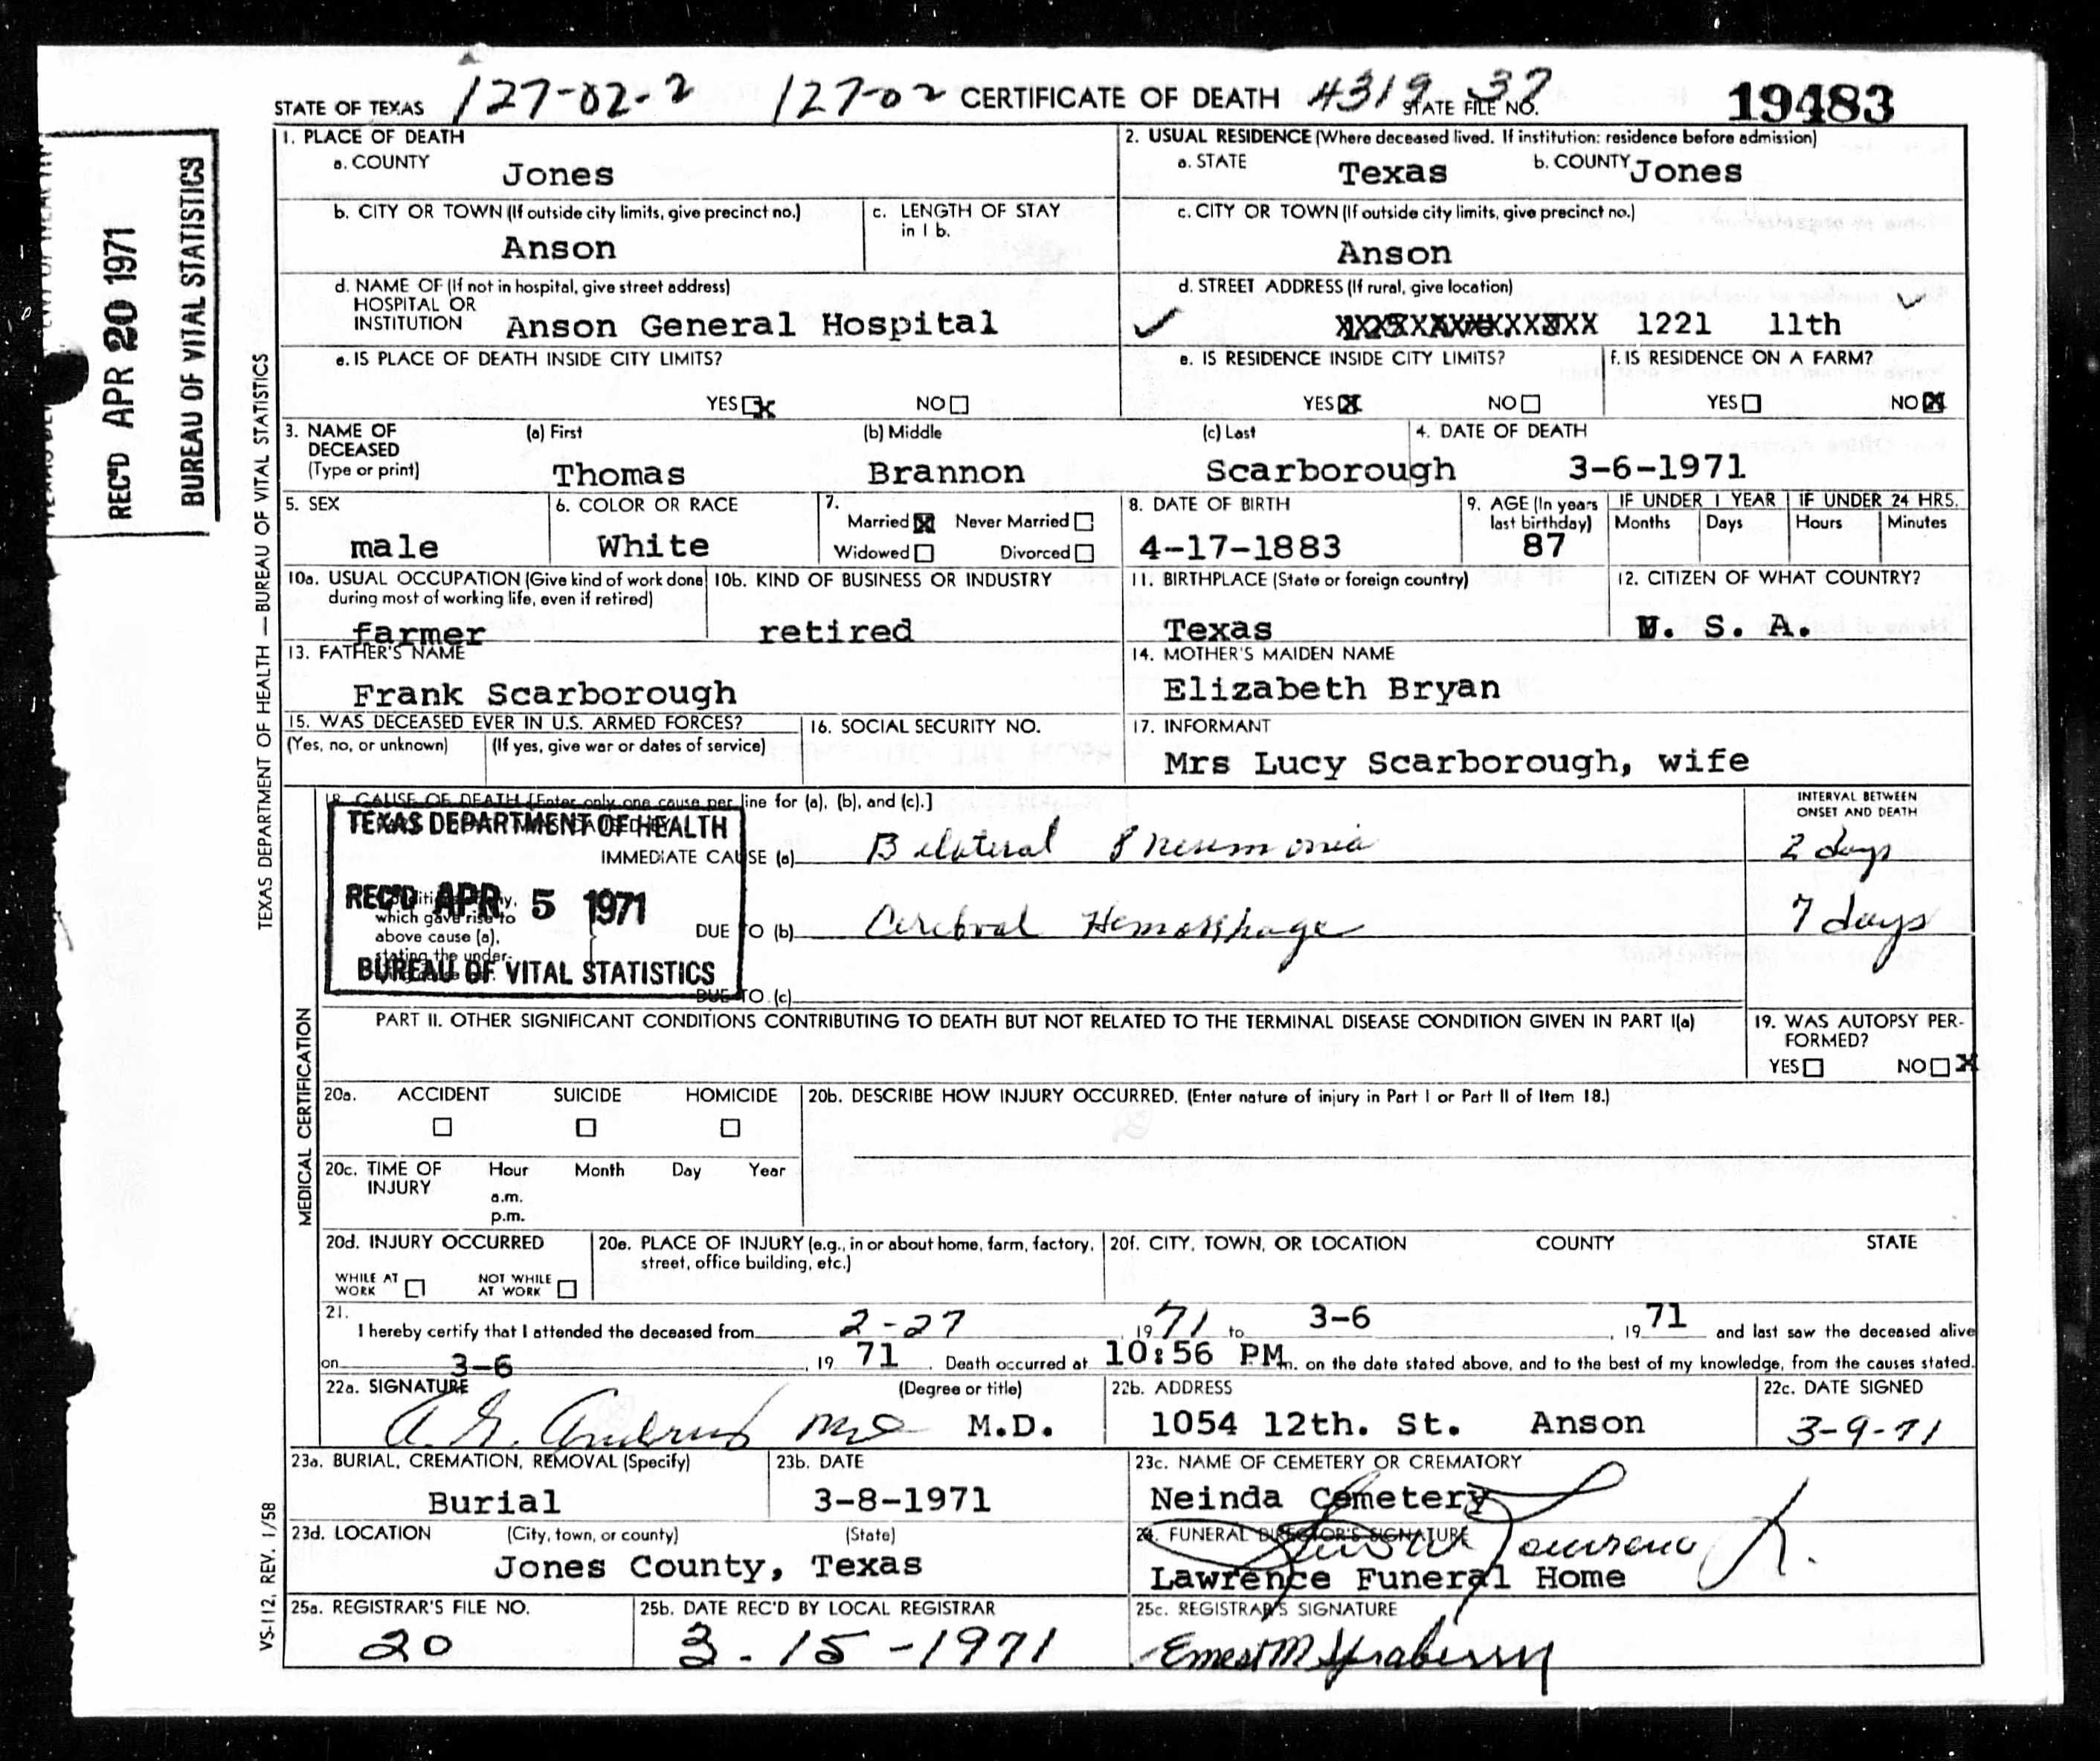 STATE OF TEXAS 127-02-2 127-02 CERTIFICATE OF DEATH 4319 37 STATE FILE NO. 19483
REC'D APR 20 1971
BUREAU OF VITAL STATISTICS
TEXAS DEPARTMENT OF HEALTH — BUREAU OF VITAL STATISTICS
1. PLACE OF DEATH
a. COUNTY Jones
2. USUAL RESIDENCE (Where deceased lived. If institution: residence before admission)
a. STATE Texas b. COUNTY Jones
b. CITY OR TOWN (If outside city limits, give precinct no.)
Anson
c. LENGTH OF STAY
in 1 b.
c. CITY OR TOWN (If outside city limits, give precinct no.)
Anson
d. NAME OF (If not in hospital, give street address)
HOSPITAL OR
INSTITUTION Anson General Hospital
d. STREET ADDRESS (If rural, give location)
1221 11th
e. IS PLACE OF DEATH INSIDE CITY LIMITS?
YES X NO
e. IS RESIDENCE INSIDE CITY LIMITS?
YES X NO
f. IS RESIDENCE ON A FARM?
YES NO X
3. NAME OF
DECEASED
(Type or print)
(a) First (b) Middle (c) Last
Thomas Brannon Scarborough
4. DATE OF DEATH
3-6-1971
5. SEX
male
6. COLOR OR RACE
White
7.
Married X Never Married
Widowed Divorced
8. DATE OF BIRTH
4-17-1883
9. AGE (In years
last birthday)
87
IF UNDER 1 YEAR
Months Days
IF UNDER 24 HRS.
Hours Minutes
10a. USUAL OCCUPATION (Give kind of work done
during most of working life, even if retired)
farmer
10b. KIND OF BUSINESS OR INDUSTRY
retired
11. BIRTHPLACE (State or foreign country)
Texas
12. CITIZEN OF WHAT COUNTRY?
U. S. A.
13. FATHER'S NAME
Frank Scarborough
14. MOTHER'S MAIDEN NAME
Elizabeth Bryan
15. WAS DECEASED EVER IN U.S. ARMED FORCES?
(Yes, no, or unknown) (If yes, give war or dates of service)
16. SOCIAL SECURITY NO.
17. INFORMANT
Mrs Lucy Scarborough, wife
MEDICAL CERTIFICATION
18. CAUSE OF DEATH [Enter only one cause per line for (a), (b), and (c).]
INTERVAL BETWEEN
ONSET AND DEATH
TEXAS DEPARTMENT OF HEALTH
REC'D APR 5 1971
BUREAU OF VITAL STATISTICS
IMMEDIATE CAUSE (a) Bilateral Pneumonia 2 days
which gave rise to
above cause (a),
stating the under-
DUE TO (b) Cerebral Hemorrhage 7 days
DUE TO (c)
PART II. OTHER SIGNIFICANT CONDITIONS CONTRIBUTING TO DEATH BUT NOT RELATED TO THE TERMINAL DISEASE CONDITION GIVEN IN PART I(a)
19. WAS AUTOPSY PER-
FORMED?
YES NO X
20a. ACCIDENT SUICIDE HOMICIDE
20b. DESCRIBE HOW INJURY OCCURRED. (Enter nature of injury in Part I or Part II of Item 18.)
20c. TIME OF
INJURY
Hour Month Day Year
a.m.
p.m.
20d. INJURY OCCURRED
WHILE AT
WORK
NOT WHILE
AT WORK
20e. PLACE OF INJURY (e.g., in or about home, farm, factory,
street, office building, etc.)
20f. CITY, TOWN, OR LOCATION COUNTY STATE
21.
I hereby certify that I attended the deceased from 2-27, 1971 to 3-6, 1971 and last saw the deceased alive
on 3-6, 19 71. Death occurred at 10:56 PM m. on the date stated above, and to the best of my knowledge, from the causes stated.
22a. SIGNATURE (Degree or title)
M.D.
22b. ADDRESS
1054 12th. St. Anson
22c. DATE SIGNED
3-9-71
23a. BURIAL, CREMATION, REMOVAL (Specify)
Burial
23b. DATE
3-8-1971
23c. NAME OF CEMETERY OR CREMATORY
Neinda Cemetery
23d. LOCATION (City, town, or county) (State)
Jones County, Texas
24. FUNERAL DIRECTOR'S SIGNATURE
Lawrence Funeral Home
25a. REGISTRAR'S FILE NO.
20
25b. DATE REC'D BY LOCAL REGISTRAR
3-15-1971
25c. REGISTRAR'S SIGNATURE
Ernest M
VS-112, REV. 1/58